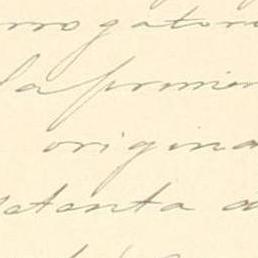 rrogatori
la primer
origina
setenta a